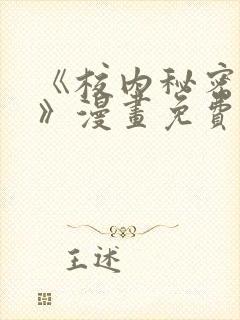 《校内秘密
》漫畫免費
王述